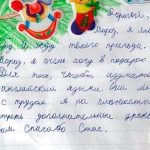 Дорогой,
Мороз, я
я жду твоего прихода.
мороз, я очень хочу в подарок
Для того, чтобы изучать
английский язык. Он
с трудом. А на планшете
дополнительные уроки
Спасибо Стас.